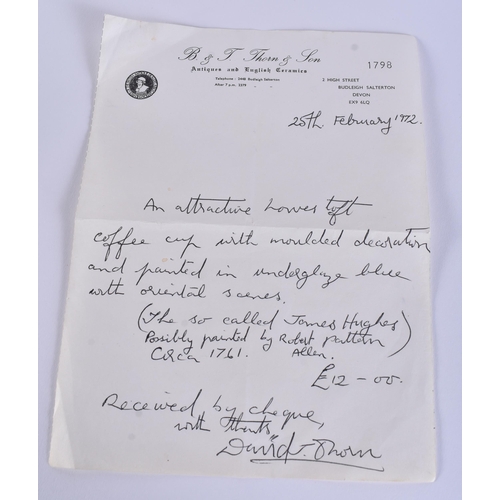 B. & T. Thorn & Son
1798
Antiques and English Ceramics
Telephone: 2448 Budleigh Salterton
After 7 p.m. 2279 " "
2 HIGH STREET
BUDLEIGH SALTERTON
DEVON
EX9 6LQ
20th February 1972.
An attractive Lowestoft
coffee cup with moulded decoration
and painted in underglaze blue
with oriental scenes.
(The so called James Hughes)
Possibly painted by Robert pattern
Circa 1761. Allen.
£12-00.
Received by cheque,
with thanks,
David J. Thorn